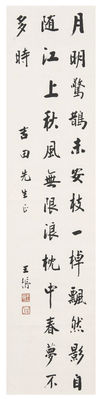 月明驚鵲未安枝一棹飄然影自
隨江上秋風無限浪枕中春夢不
多時
吉田先生正
王濤